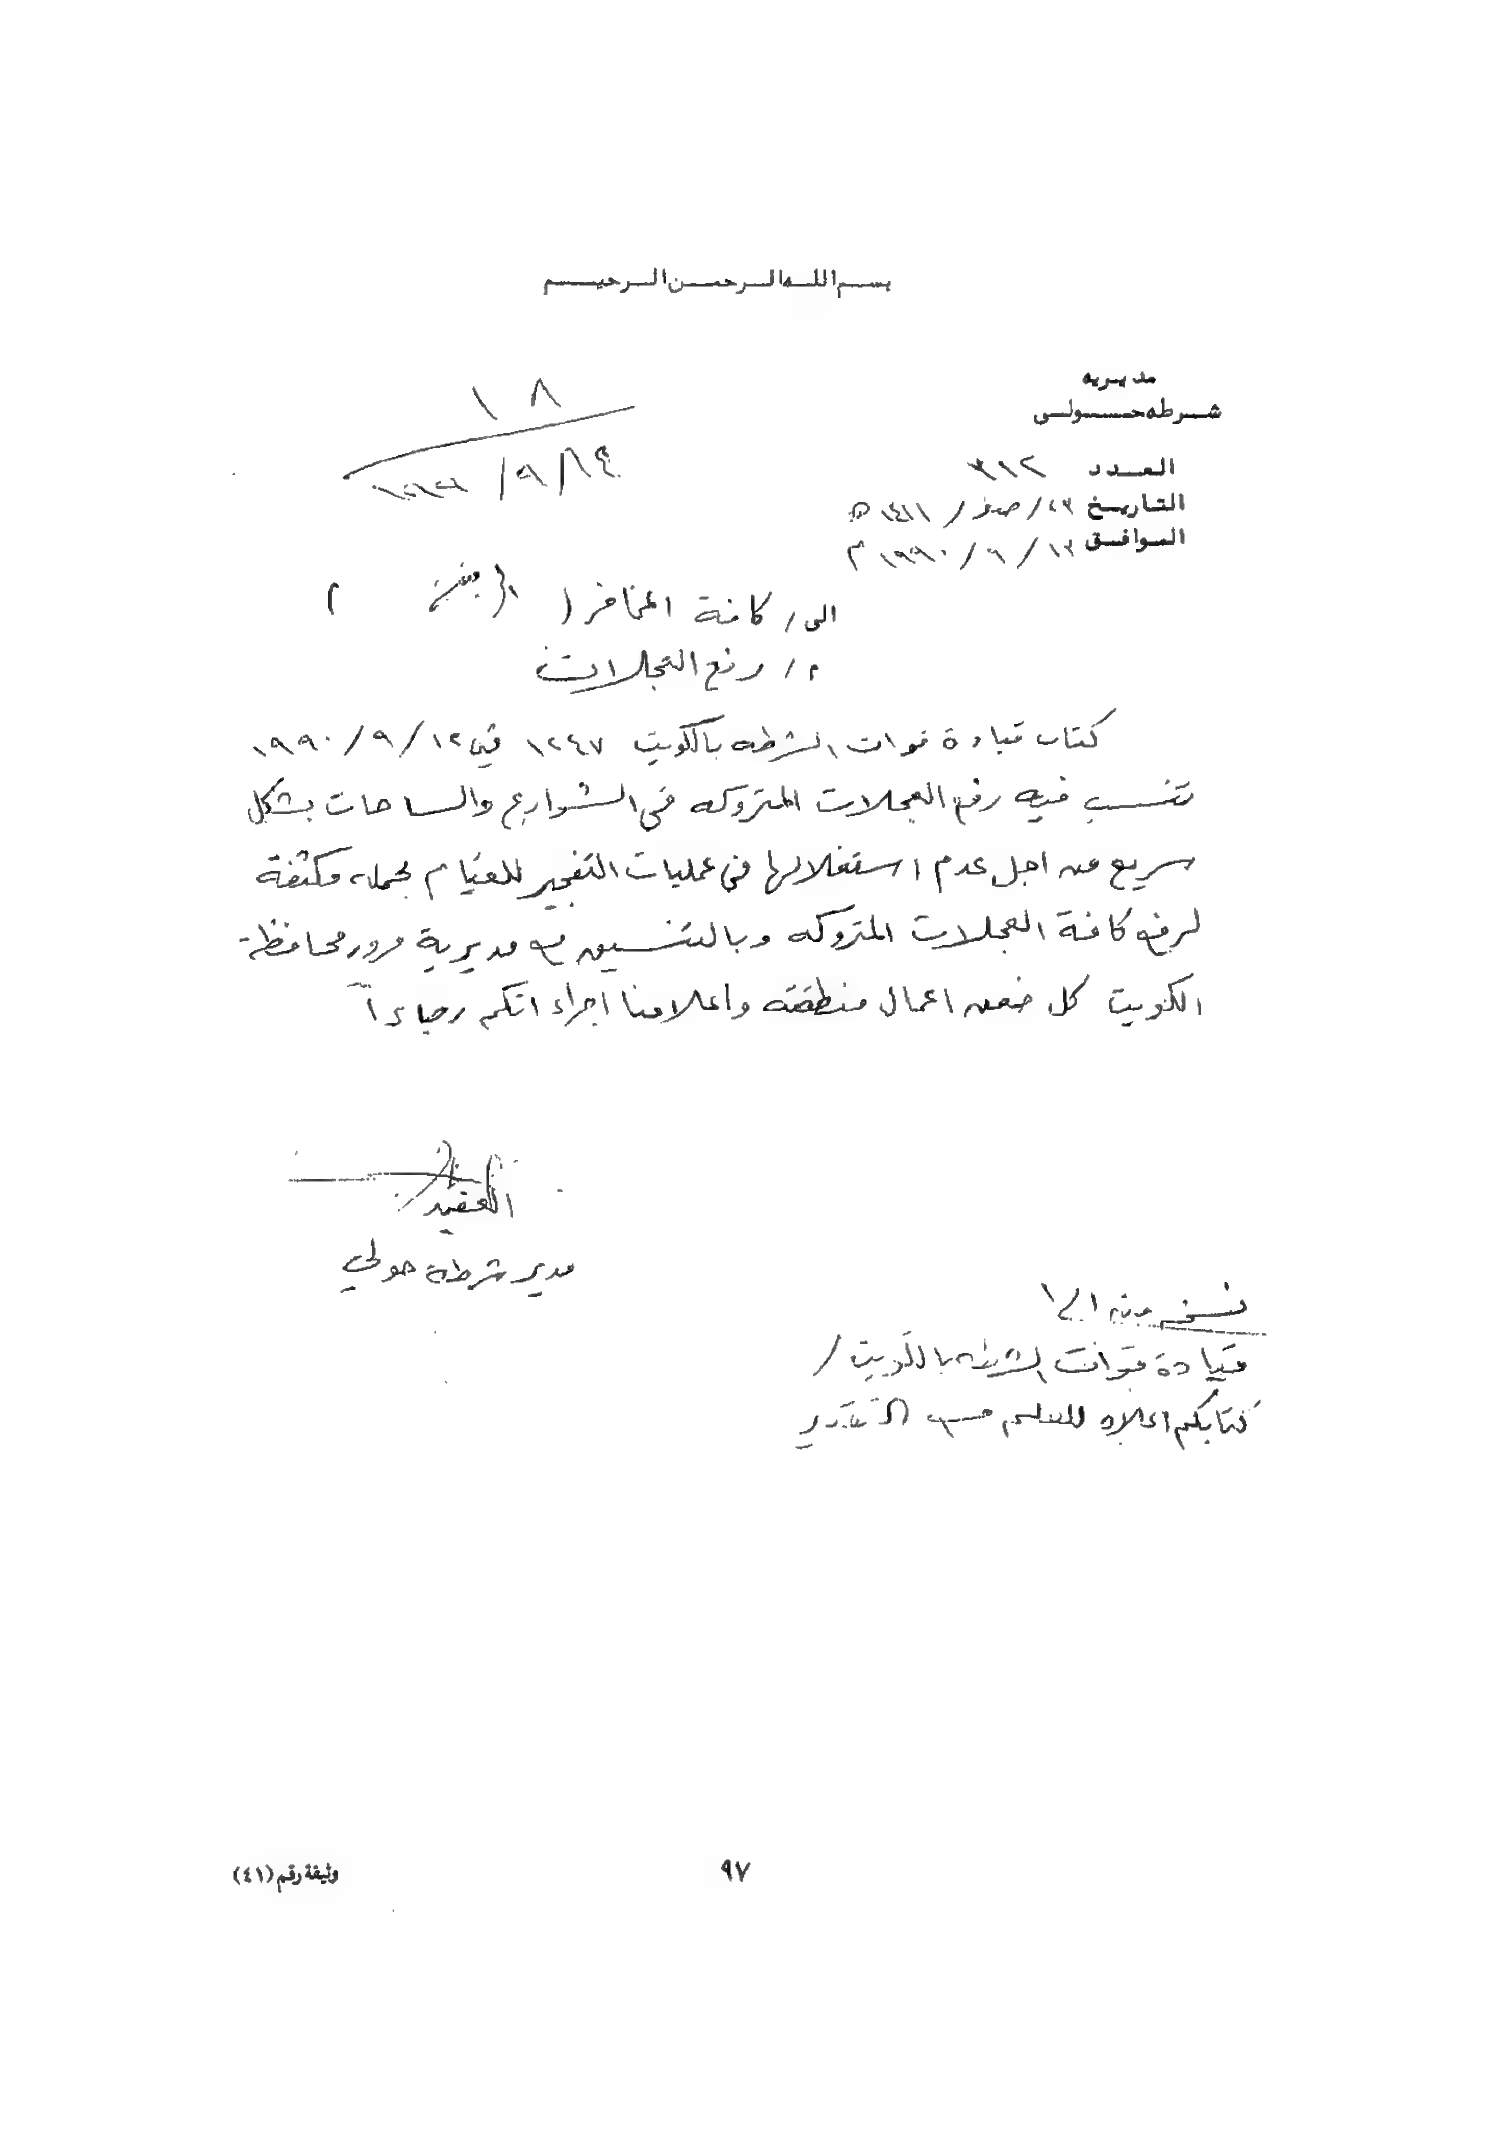 بسم الله الرحمن الرحيم
مديريه
شرطه حولي
١٨
العدد ٣١٢
١٤/٩/
التاريخ ٢٣/صفر/١٤١١ه
الموافق ١٣/٩/١٩٩٠م
الى/ كافة المخافر ( )
م/ رفع العجلات
كتاب قيادة قوات الشرطه بالكويت ١٢٤٧ في ١٢/٩/١٩٩٠
تنسب فيه رفع العجلات المتروكه في الشوارع والساحات بشكل
سريع من اجل عدم استغلالها في عمليات التفجير للقيام بحمله مكثفة
لرفع كافة العجلات المتروكه وبالتنسيق مع مديرية مرور محافظة
الكويت كل ضمن اعمال منطقته واعلامنا اجراءاتكم رجاءاً
العقيد
مدير شرطة حولي
نسخه منه الى/
قيادة قوات الشرطه بالكويت/
كتابكم اعلاه للعلم مع التقدير
٩٧
وثيقة رقم (٤١)